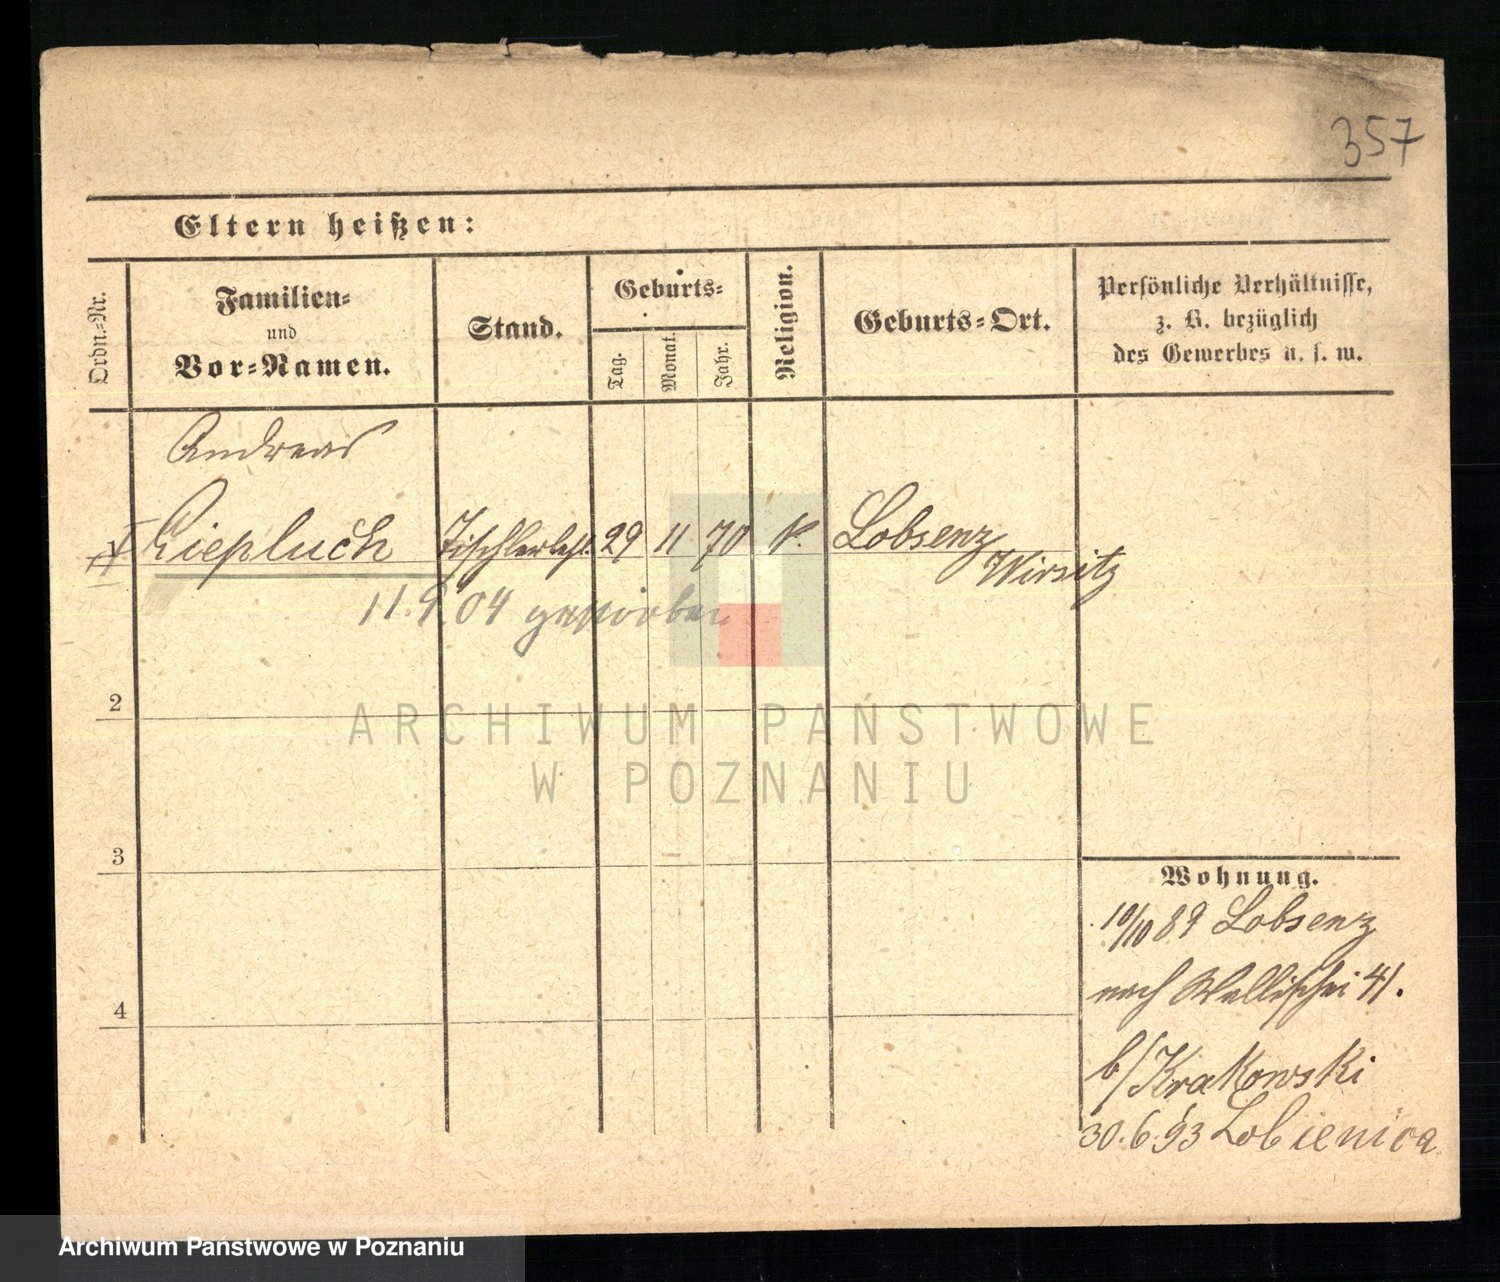 357
Eltern heißen:
Ordn.-Nr.
Familien-
und
Vor-Namen.
Stand.
Geburts-
Tag.
Monat.
Jahr.
Religion.
Geburts-Ort.
Persönliche Verhältnisse,
z. B. bezüglich
des Gewerbes u. s. w.
Andreas
Ciepluch Tischlerlehrl. 29 11 70 k. Lobsenz
Wirsitz
11.9.04 gestorben
2
3
4
ARCHIWUM PAŃSTWOWE
W POZNANIU
Wohnung.
10/10 89 Lobsenz
nach Wallischei 41.
b/Krakowski
30.6.93 Lobsenica
Archiwum Państwowe w Poznaniu